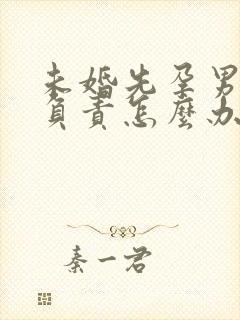 未婚先孕男
負責怎麼办
秦一君